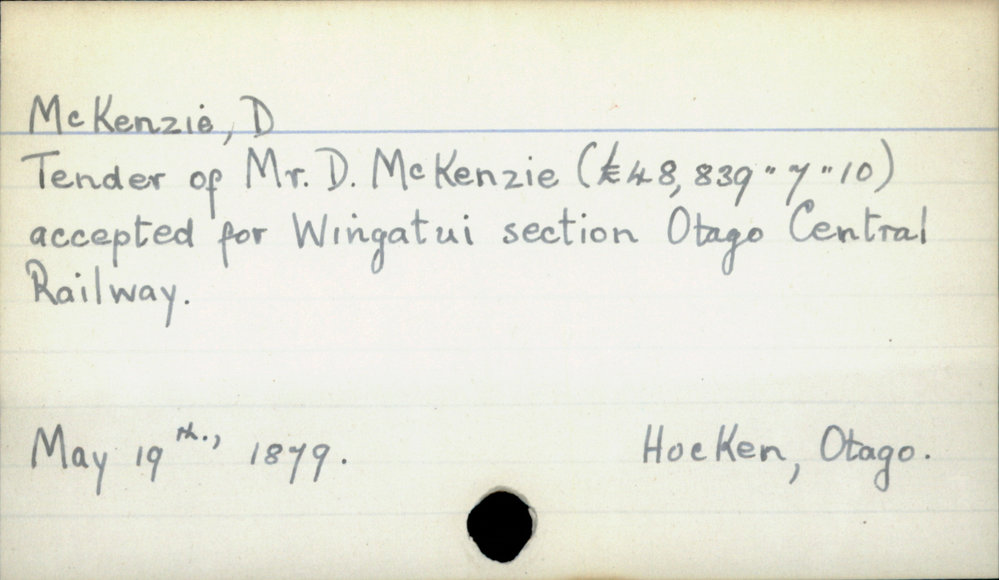 McKenzie, D
Tender of Mr. D. McKenzie (£48,839"7"10)
accepted for Wingatui section Otago Central
Railway.
May 19th., 1879.
Hocken, Otago.